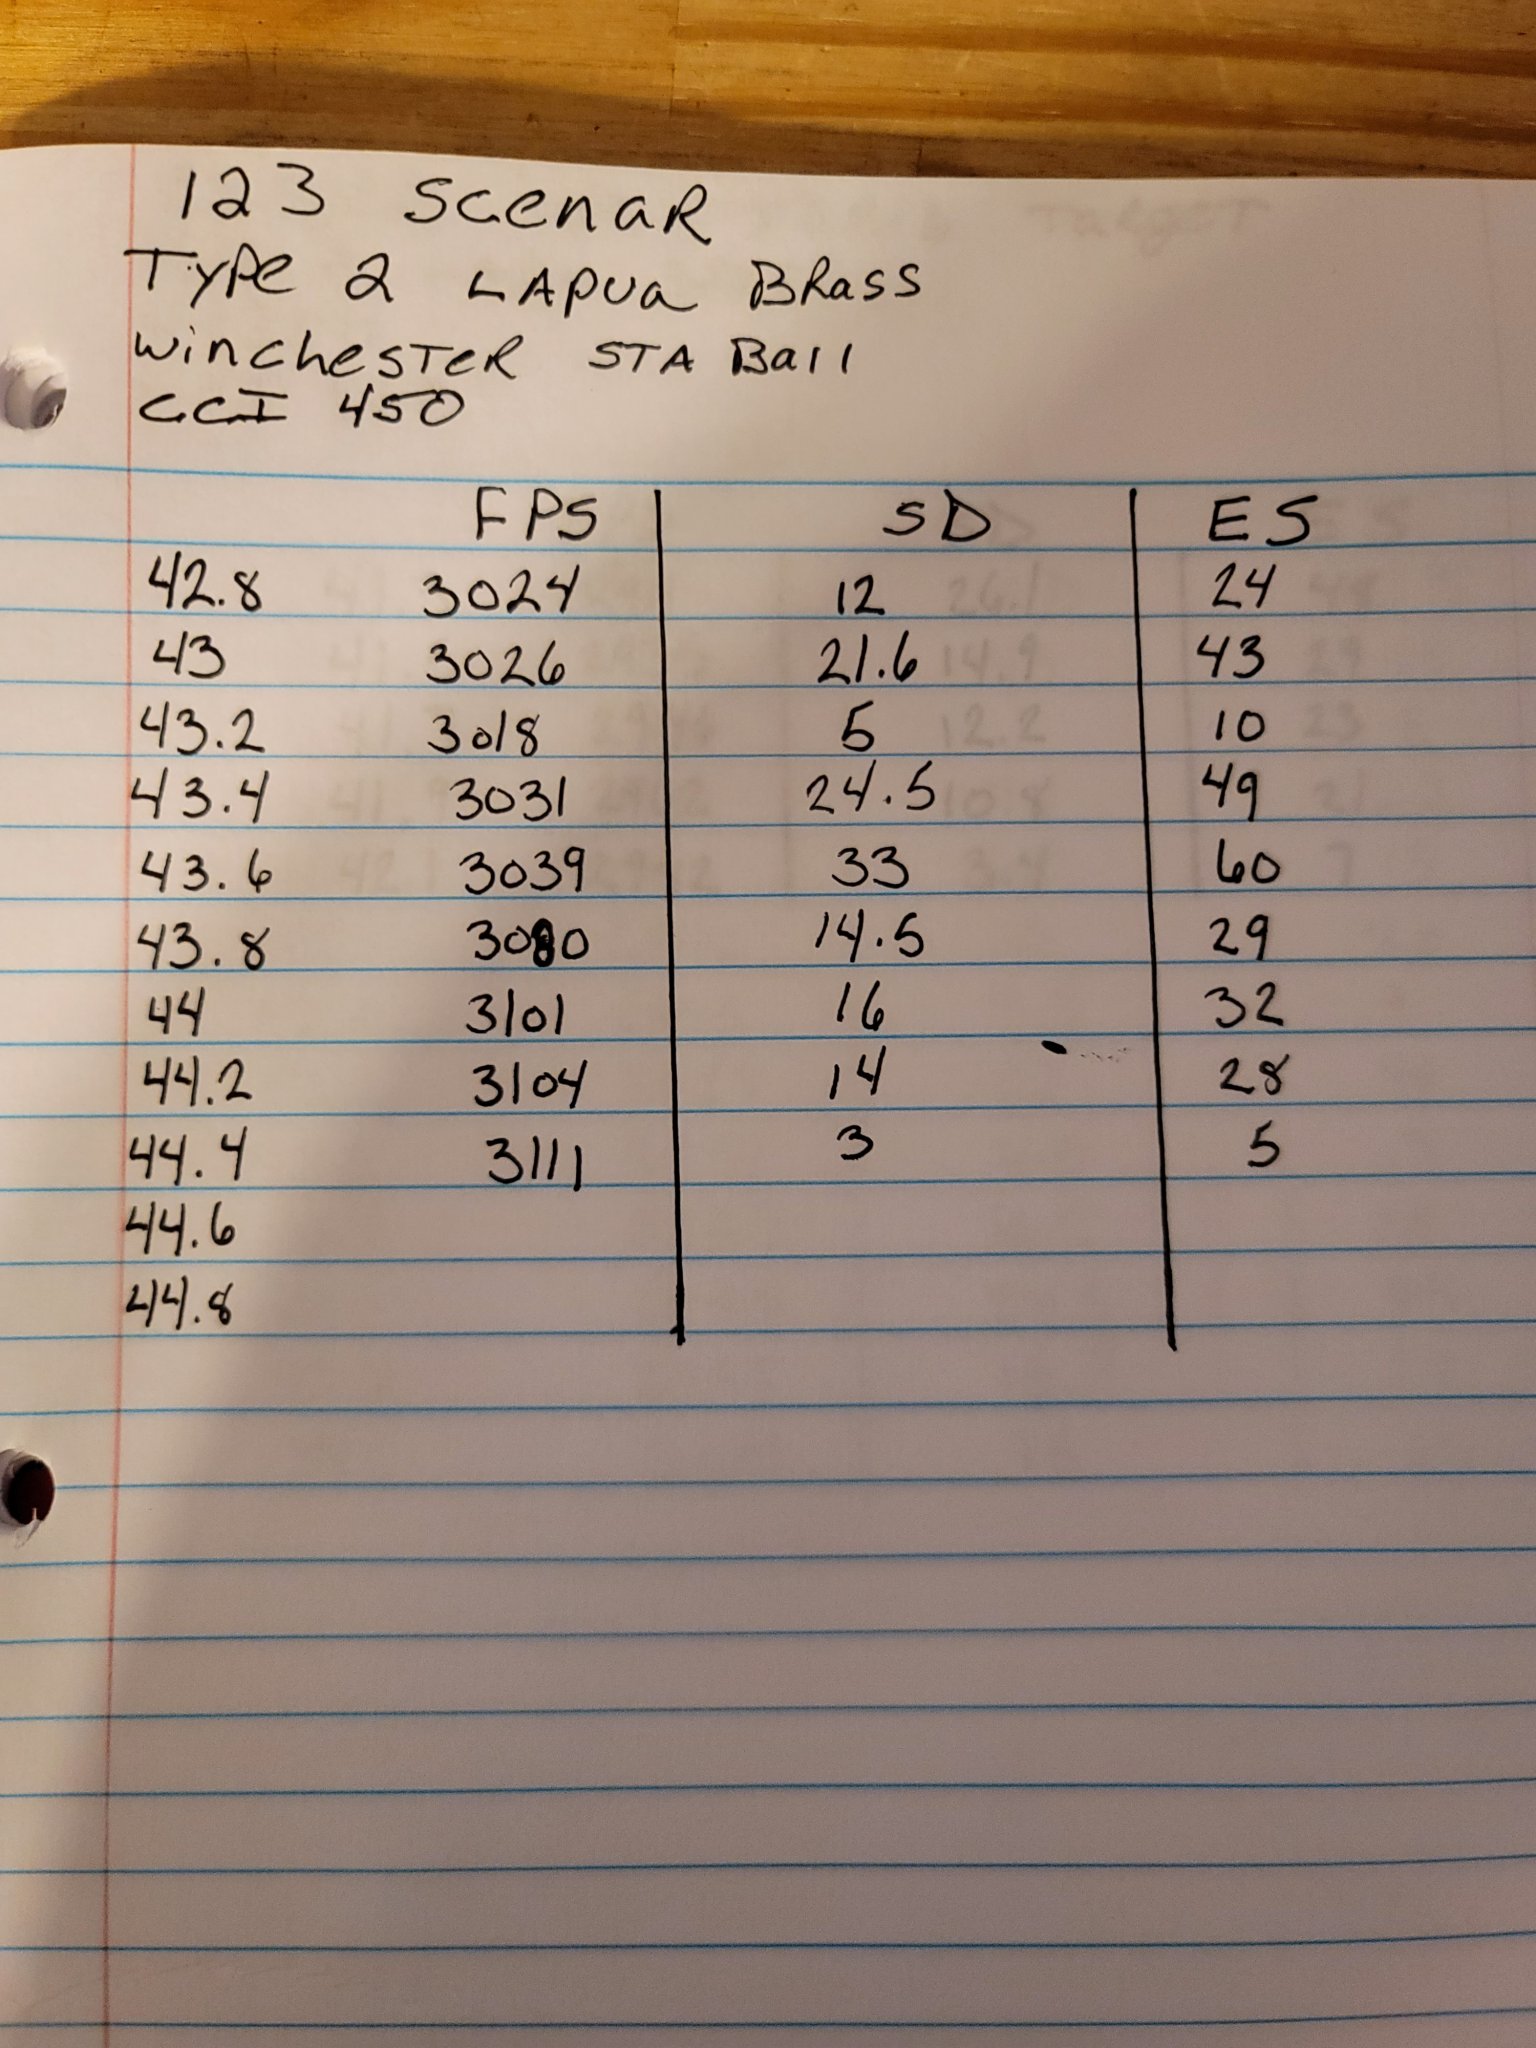 123 Scenar
Type 2 Lapua Brass
Winchester STA Ball
CCI 450
FPS SD ES
42.8 3024 12 24
43 3026 21.6 43
43.2 3018 5 10
43.4 3031 24.5 49
43.6 3039 33 60
43.8 3080 14.5 29
44 3101 16 32
44.2 3104 14 28
44.4 3111 3 5
44.6
44.8